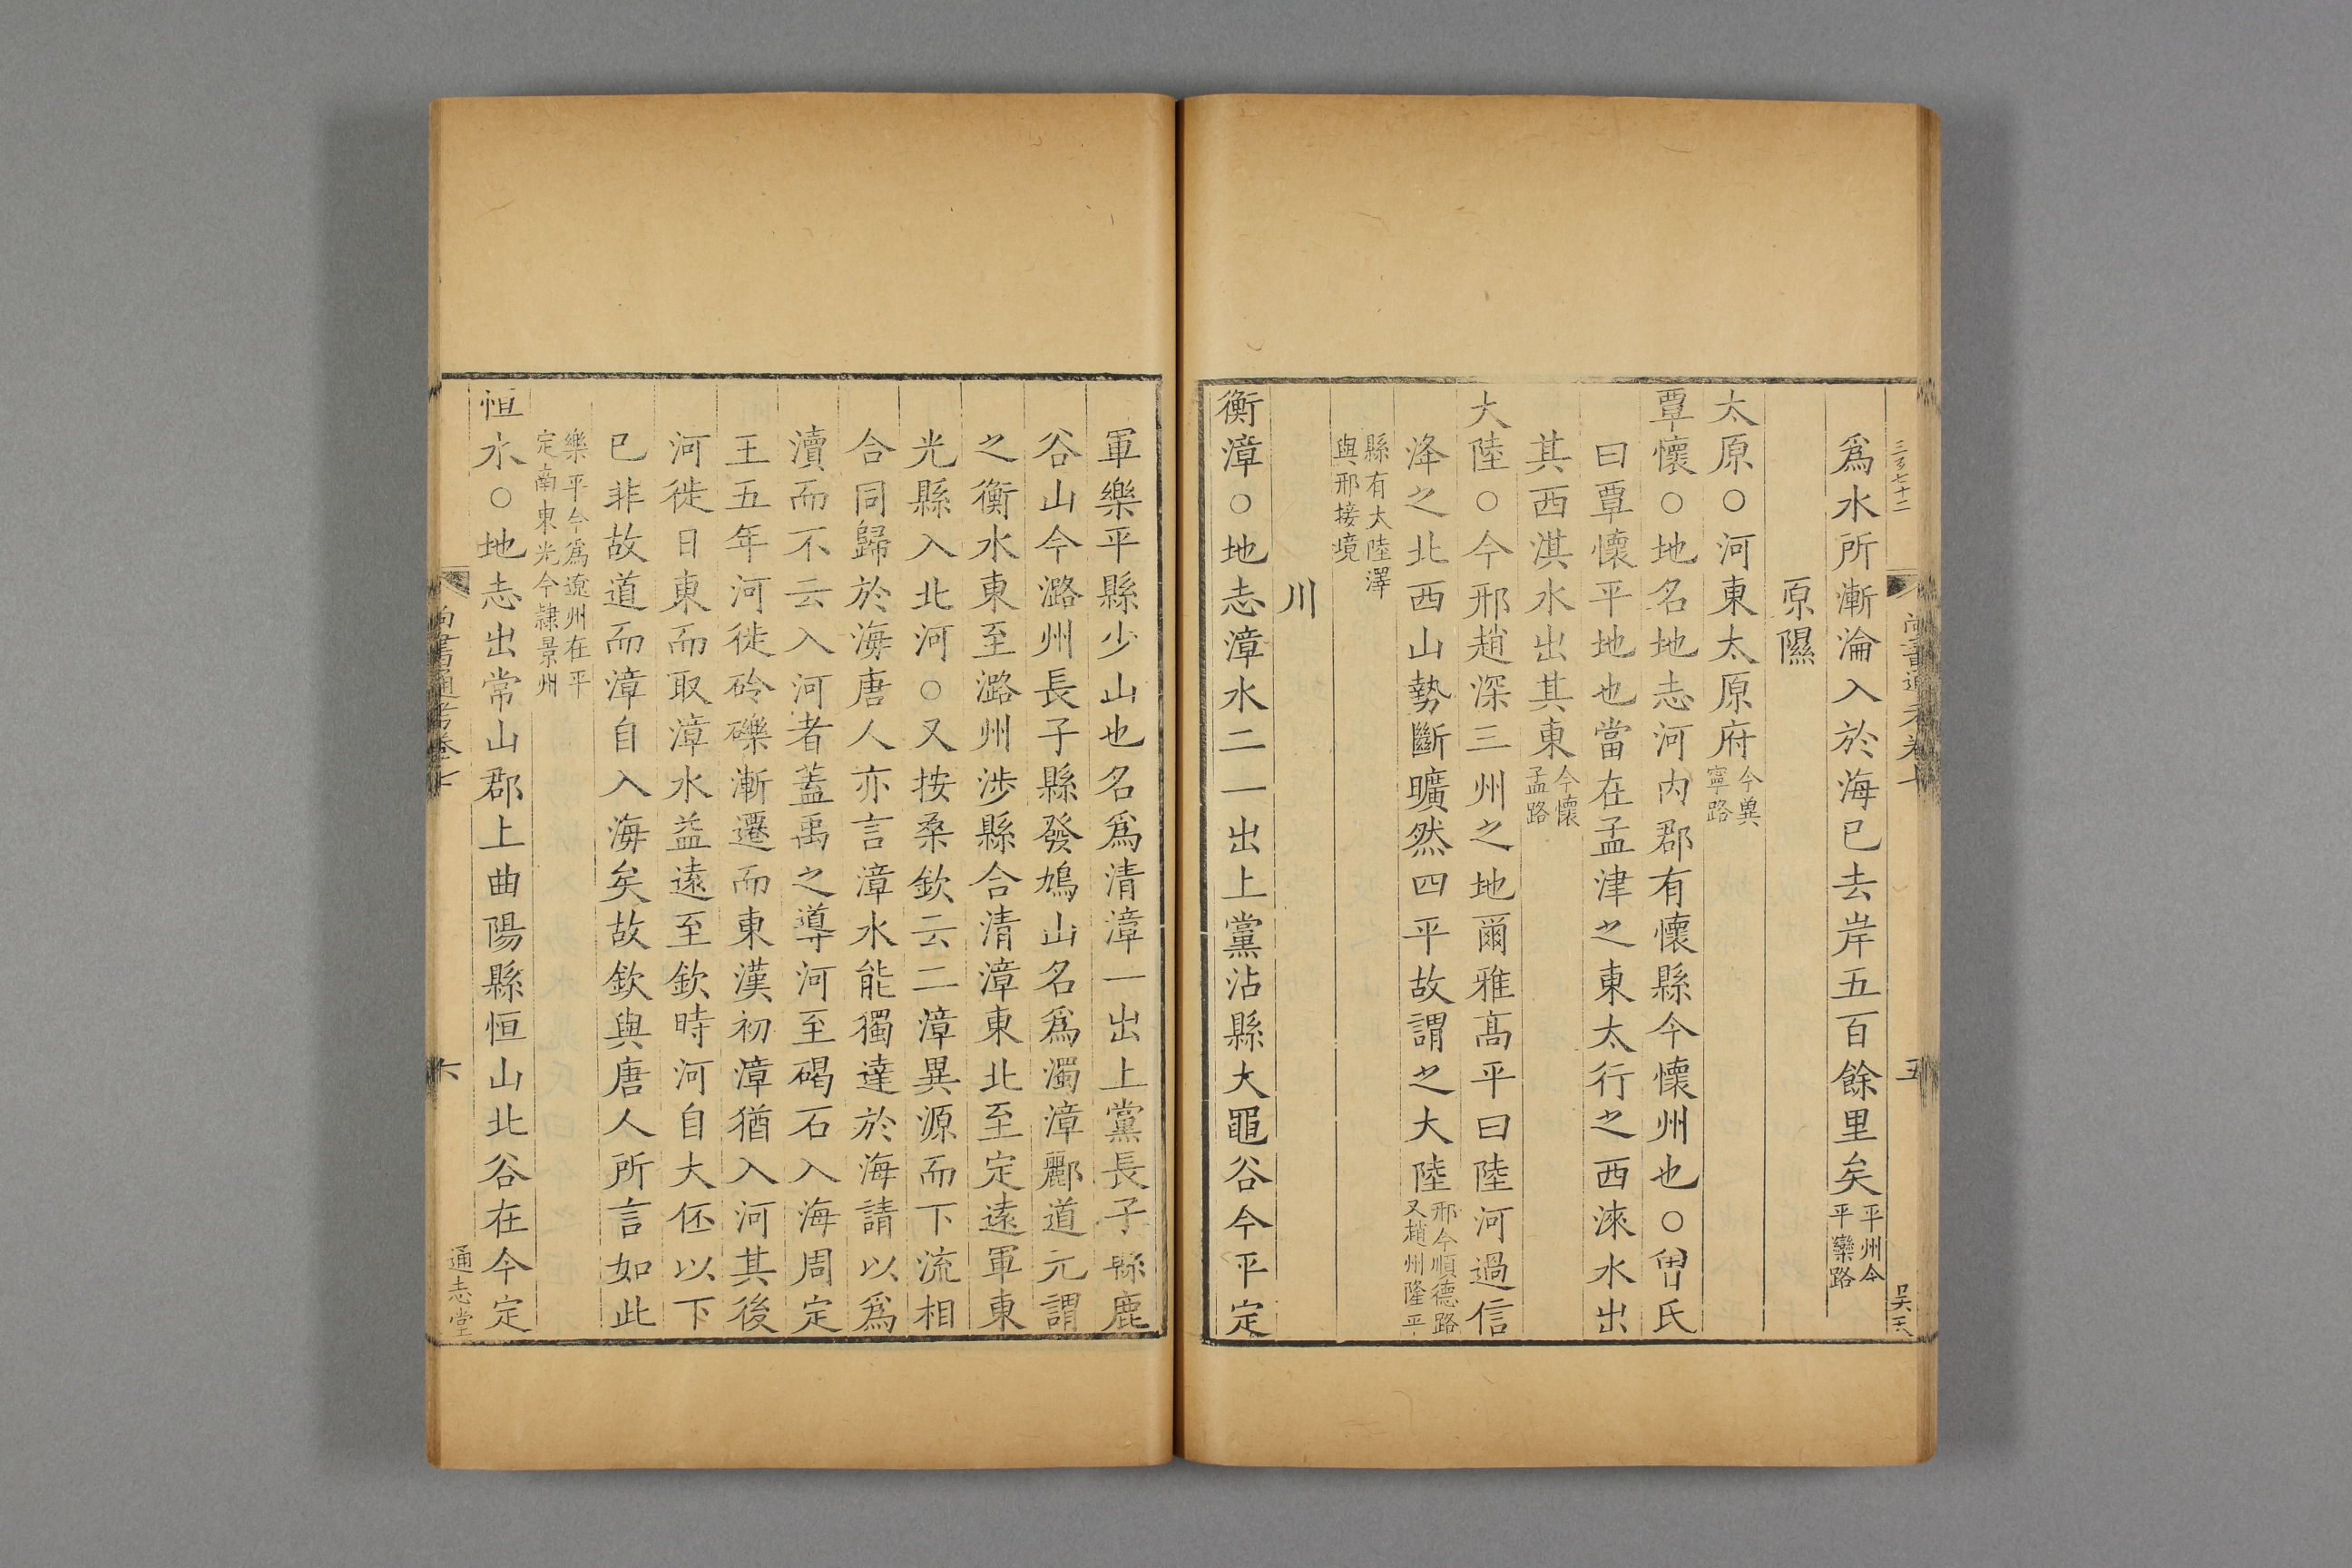 三百七十二
爲水所漸淪入於海已去岸五百餘里矣平州今平欒路
原隰
太原○河東太原府今兾寧路
覃懷○地名地志河内郡有懷縣今懷州也○曾氏
曰覃懷平地也當在孟津之東太行之西淶水出
其西淇水出其東今懷孟路
大陸○今邢趙深三州之地爾雅高平曰陸河過信
洚之北西山勢斷曠然四平故謂之大陸邢今順德路又趙州隆平
縣有大陸澤與邢接境
川
衡漳○地志漳水二一出上黨沾縣大黽谷今平定
軍樂平縣少山也名爲清漳一出上黨長子縣鹿
谷山今潞州長子縣發鳩山名爲濁漳酈道元謂
之衡水東至潞州涉縣合清漳東北至定遠軍東
光縣入北河○又按桑欽云二漳異源而下流相
合同歸於海唐人亦言漳水能獨達於海請以爲
瀆而不云入河者蓋禹之導河至碣石入海周定
王五年河徙砱礫漸遷而東漢初漳猶入河其後
河徙日東而取漳水益遠至欽時河自大伾以下
已非故道而漳自入海矣故欽與唐人所言如此
樂平今爲遼州在平定南東光今隷景州
恒水○地志出常山郡上曲陽縣恒山北谷在今定
尚書通考卷七
六
通志堂